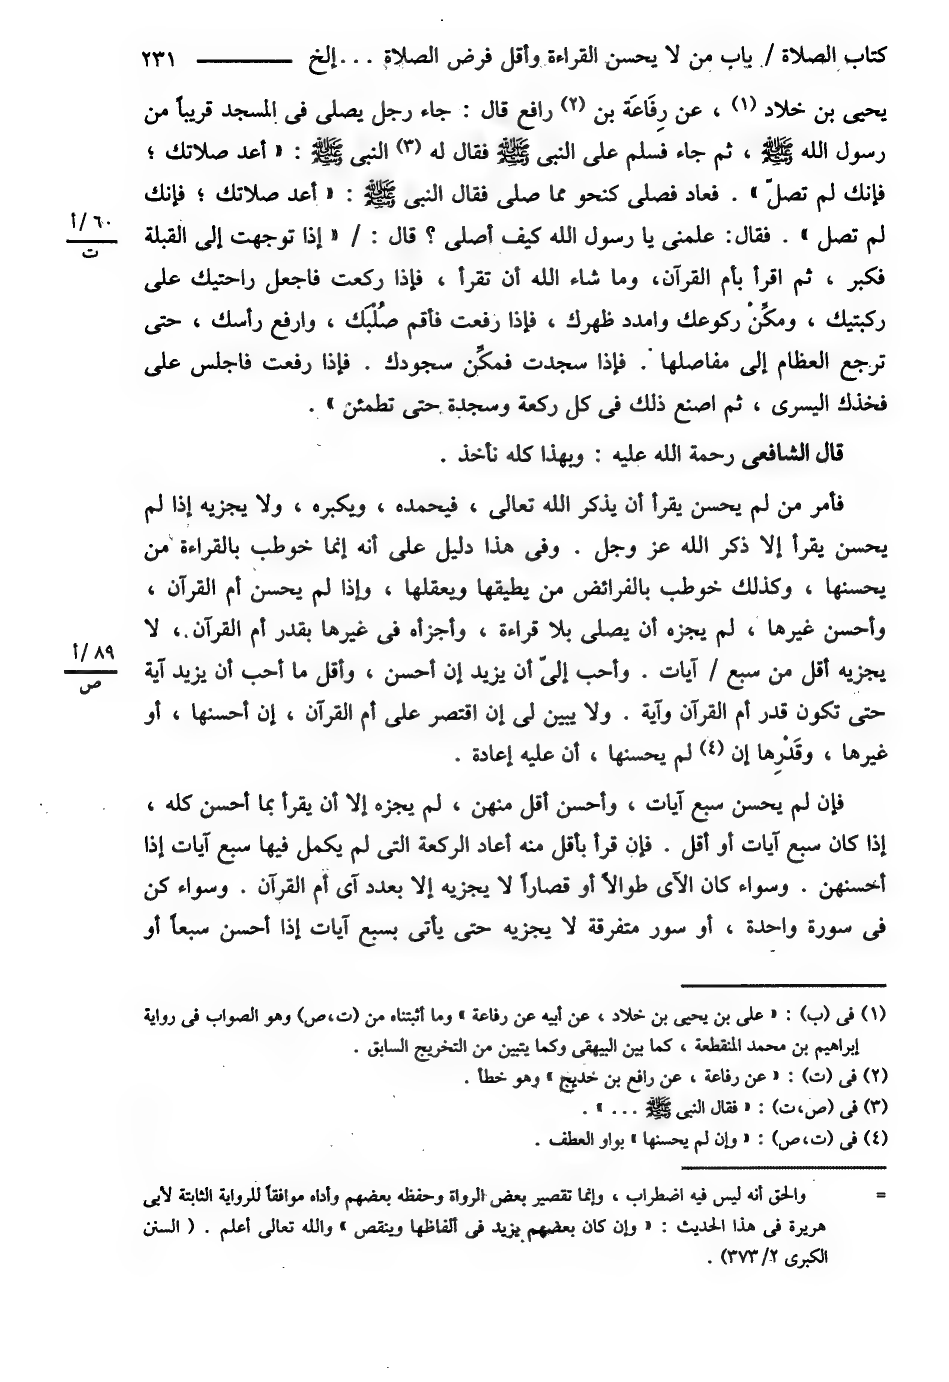 كتاب الصلاة / باب من لا يحسن القراءة وأقل فرض الصلاة ... إلخ ٢٣١
يحيى بن خلاد (١) ، عن رِفَاعَة بن (٢) رافع قال : جاء رجل يصلى فى المسجد قريباً من
رسول الله ﷺ ، ثم جاء فسلم على النبى ﷺ فقال له (٣) النبى ﷺ : « أعد صلاتك ؛
فإنك لم تصلّ » . فعاد فصلى كنحو مما صلى فقال النبى ﷺ : « أعد صلاتك ؛ فإنك
لم تصل » . فقال: علمنى يا رسول الله كيف أصلى ؟ قال : / « إذا توجهت إلى القبلة
٦٠ /أ
ت
فكبر ، ثم اقرأ بأم القرآن، وما شاء الله أن تقرأ ، فإذا ركعت فاجعل راحتيك على
ركبتيك ، ومكِّنْ ركوعك وامدد ظهرك ، فإذا رفعت فأقم صُلْبَك ، وارفع رأسك ، حتى
ترجع العظام إلى مفاصلها . فإذا سجدت فمكِّن سجودك . فإذا رفعت فاجلس على
فخذك اليسرى ، ثم اصنع ذلك فى كل ركعة وسجدة حتى تطمئن » .
قال الشافعى رحمة الله عليه : وبهذا كله نأخذ .
فأمر من لم يحسن يقرأ أن يذكر الله تعالى ، فيحمده ، ويكبره ، ولا يجزيه إذا لم
يحسن يقرأ إلا ذكر الله عز وجل . وفى هذا دليل على أنه إنما خوطب بالقراءة من
يحسنها ، وكذلك خوطب بالفرائض من يطيقها ويعقلها ، وإذا لم يحسن أم القرآن ،
وأحسن غيرها ، لم يجزه أن يصلى بلا قراءة ، وأجزأه فى غيرها بقدر أم القرآن ، لا
يجزيه أقل من سبع / آيات . وأحب إلىّ أن يزيد إن أحسن ، وأقل ما أحب أن يزيد آية
٨٩ /أ
ص
حتى تكون قدر أم القرآن وآية . ولا يبين لى إن اقتصر على أم القرآن ، إن أحسنها ، أو
غيرها ، وقَدْرِها إن (٤) لم يحسنها ، أن عليه إعادة .
فإن لم يحسن سبع آيات ، وأحسن أقل منهن ، لم يجزه إلا أن يقرأ بما أحسن كله ،
إذا كان سبع آيات أو أقل . فإن قرأ بأقل منه أعاد الركعة التى لم يكمل فيها سبع آيات إذا
أحسنهن . وسواء كان الآى طوالاً أو قصاراً لا يجزيه إلا بعدد آى أم القرآن . وسواء كن
فى سورة واحدة ، أو سور متفرقة لا يجزيه حتى يأتى بسبع آيات إذا أحسن سبعاً أو
(١) فى (ب) : « على بن يحيى بن خلاد ، عن أبيه عن رفاعة » وما أثبتناه من (ت،ص) وهو الصواب فى رواية
إبراهيم بن محمد المنقطعة ، كما بين البيهقى وكما يتبين من التخريج السابق .
(٢) فى (ت) : « عن رفاعة ، عن رافع بن خديج » وهو خطأ .
(٣) فى (ص،ت) : « فقال النبى ﷺ ... » .
(٤) فى (ت،ص) : « وإن لم يحسنها » بواو العطف .
= والحق أنه ليس فيه اضطراب ، وإنما تقصير بعض الرواة وحفظه بعضهم وأداه موافقاً للرواية الثابتة لأبى
هريرة فى هذا الحديث : « وإن كان بعضهم يزيد فى ألفاظها وينقص » والله تعالى أعلم . ( السنن
الكبرى ٢ /٣٧٣) .